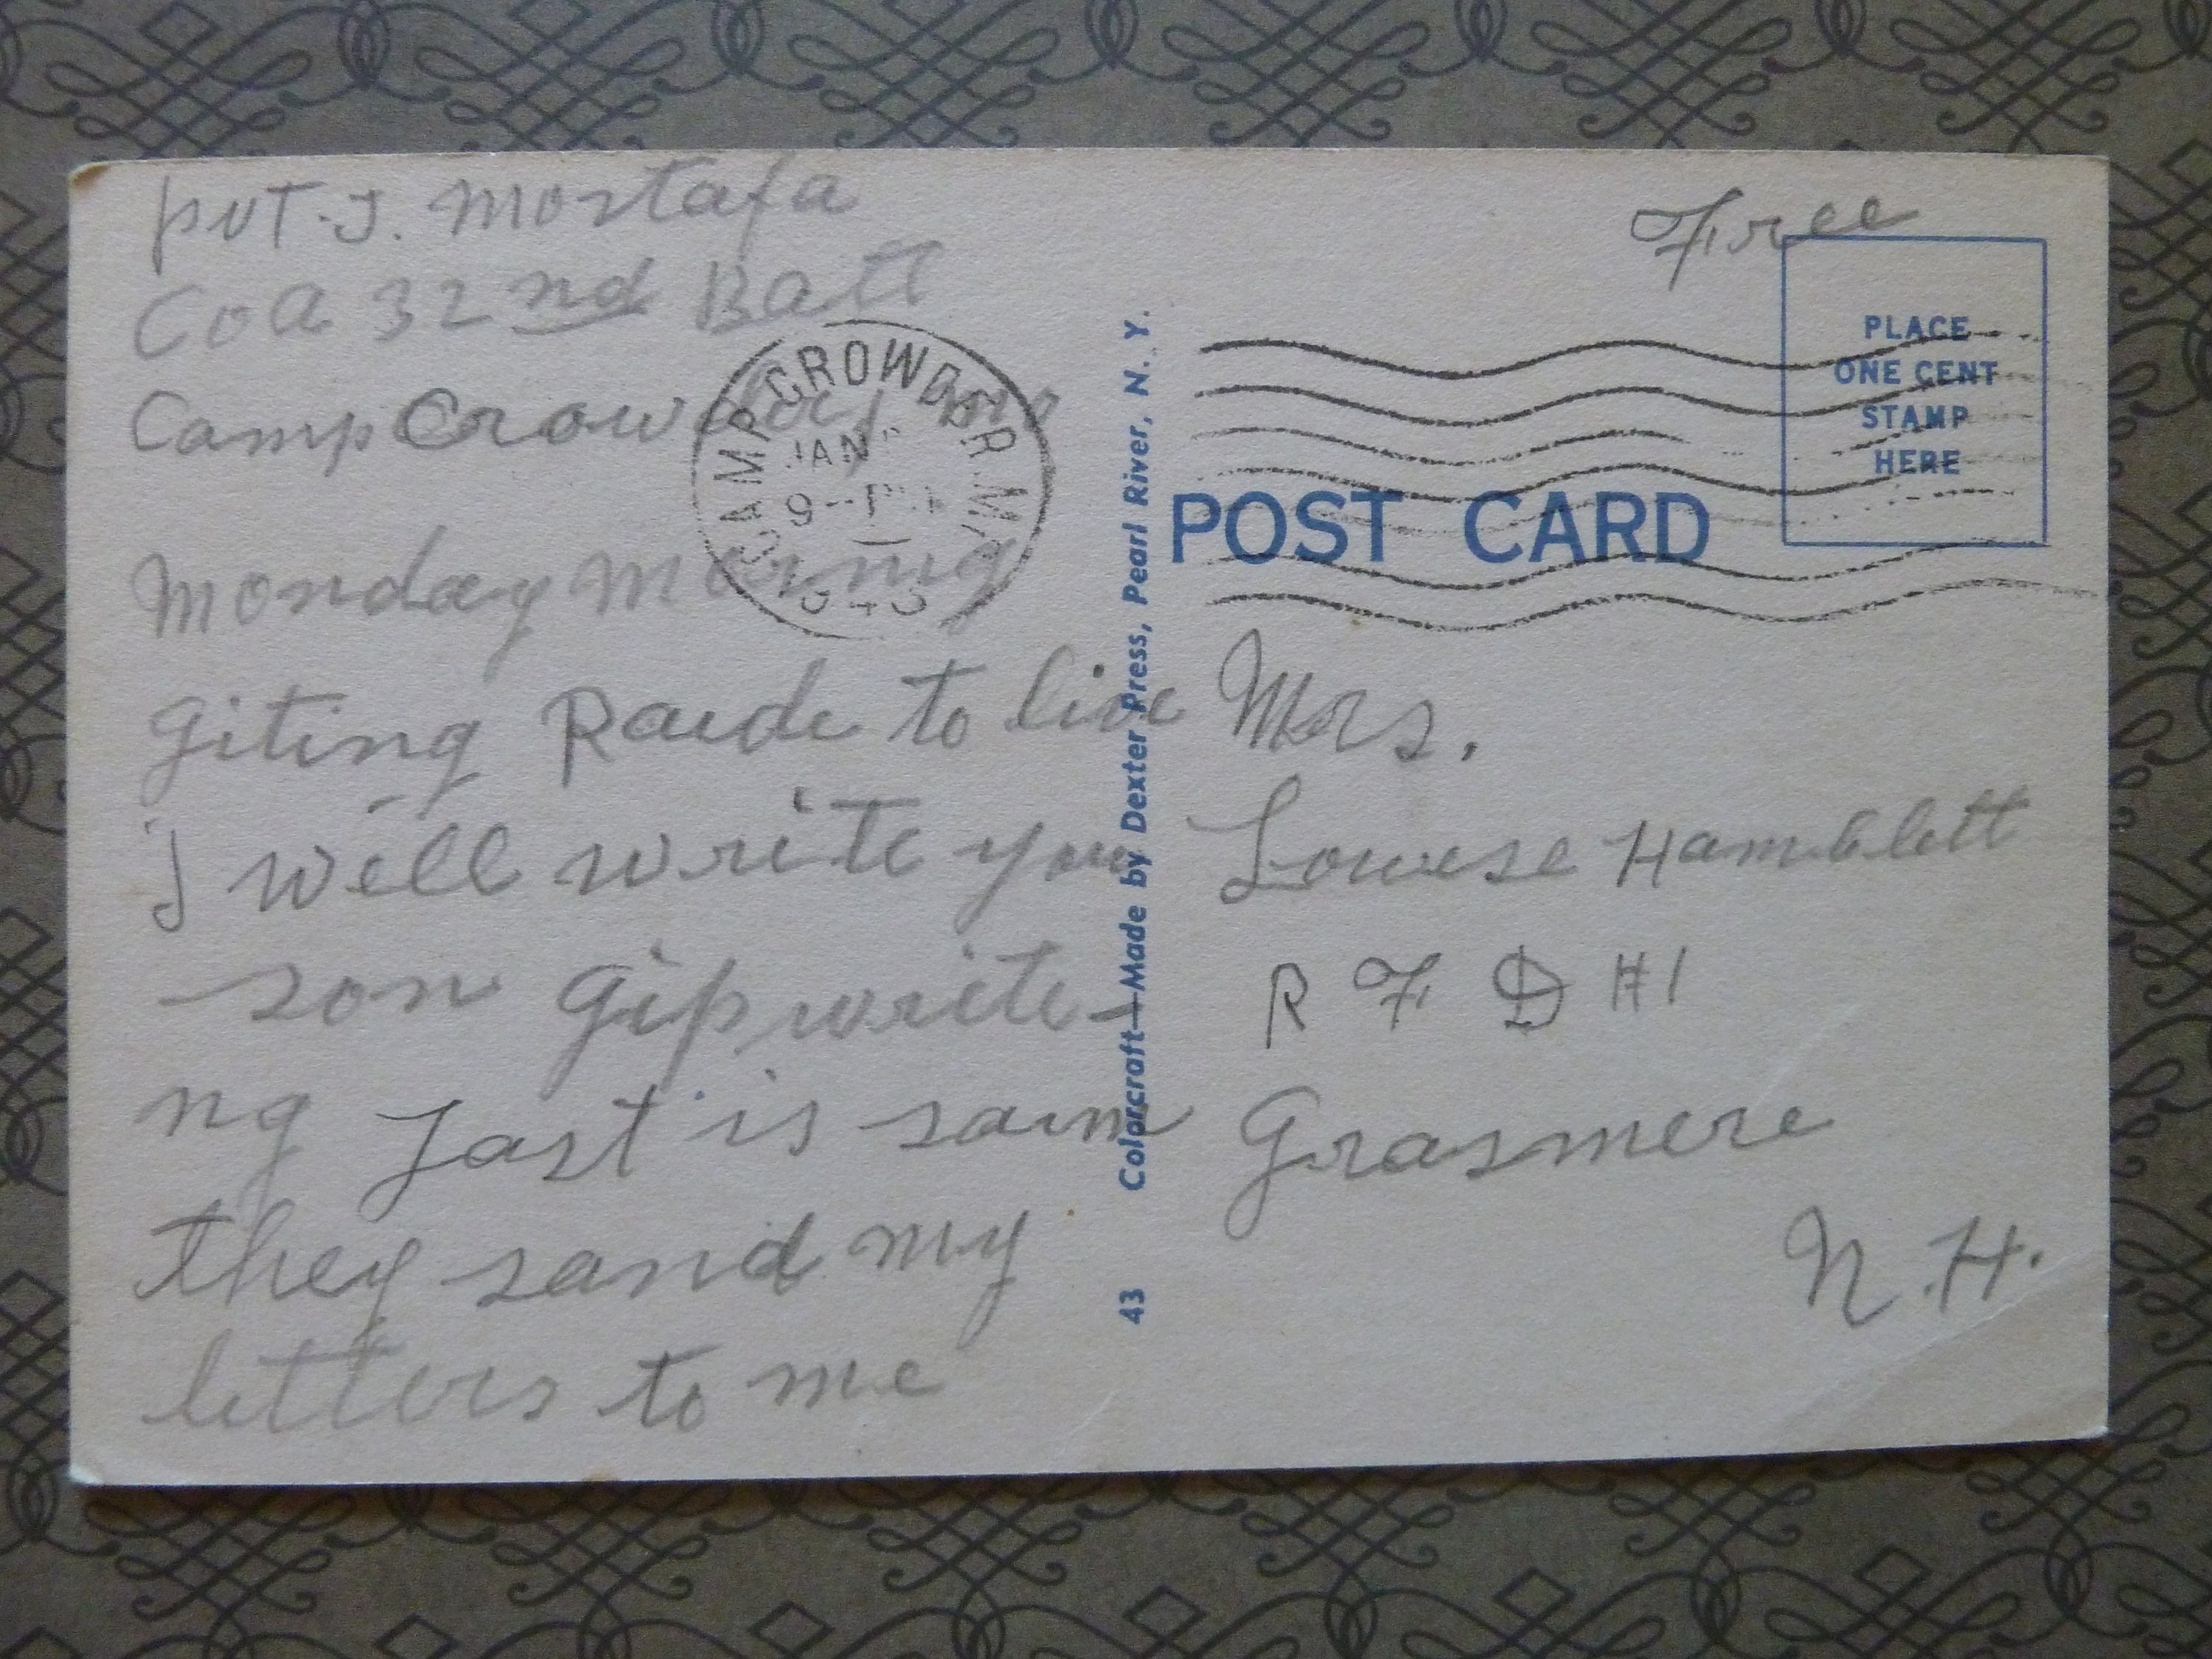 pvT. J. Mostafa
Co a 32 nd Batt
Camp Crowder, mo
Monday Morning
giting Raede to live
I will write you
son gip write-
ng Jast is sam
they sand my
letters to me
CAMP CROWDER MO.
JAN
9-PM
Free
PLACE
ONE CENT
STAMP
HERE
POST CARD
Mrs.
Lowese Hamblett
R F D #1
Grasmere
N.H.
43 Colorcraft—Made by Dexter Press, Pearl River, N. Y.